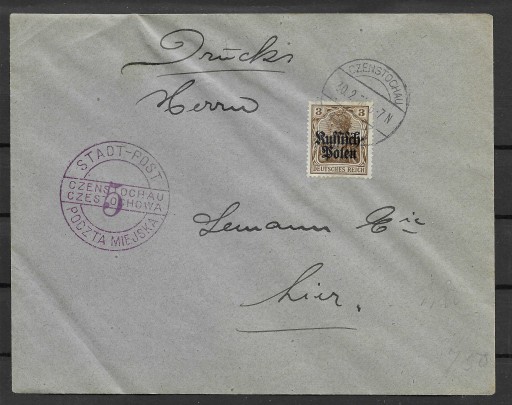 Drucks
Herrn
CZENSTOCHAU
7-N
3 3
Russisch-
Polen
DEUTSCHES REICH
STADT-POST
CZENSTOCHAU
5
CZĘSTOCHOWA
POCZTA MIEJSKA
Lemann & Cie
hier.